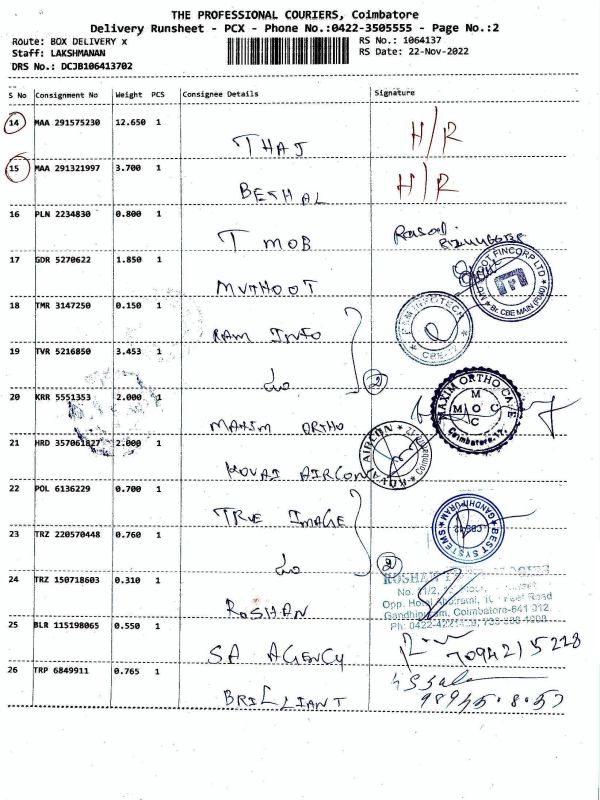 THE PROFESSIONAL COURIERS, Coimbatore
Delivery Runsheet - PCX - Phone No.:0422-3505555 - Page No.:2
Route: BOX DELIVERY x
RS No.: 1064137
Staff: LAKSHMANAN
RS Date: 22-Nov-2022
DRS No.: DCJB106413702
S No Consignment No Weight PCS Consignee Details Signature
14 MAA 291575230 12.650 1 THAJ H/R
15 MAA 291321997 3.700 1 BETHAL H/R
16 PLN 2234830 0.800 1 T MOB
17 GDR 5270622 1.850 1 MUTHOOT
18 TMR 3147250 0.150 1 RAM INFO
RAM INFOTECH
19 TVR 5216850 3.453 1 2
20 KRR 5551353 2.000 1 MAXIM ORTHO
MAXIM ORTHO CARE
MOCC
M
Coimbatore-12.
21 HRD 357061827 2.000 1 KOVAI AIRCON
KOVAI AIRCON
Coimbatore
22 POL 6136229 0.700 1 TRUE IMAGE
BEST SYSTEMS
GANDHIPURAM
23 TRZ 220570448 0.760 1 2
24 TRZ 150718603 0.310 1 ROSHAN
ROSHAN
Coimbatore-641 012.
25 BLR 115198065 0.550 1 SA AGENCY
7094215228
26 TRP 6849911 0.765 1 BRILLIANT